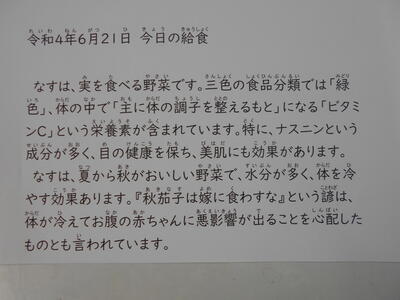 令和4年6月21日 今日の給食
なすは、実を食べる野菜です。三色の食品分類では「緑
色」、体の中で「主に体の調子を整えるもと」になる「ビタミ
ンC」という栄養素が含まれています。特に、ナスニンという
成分が多く、目の健康を保ち、美肌にも効果があります。
なすは、夏から秋がおいしい野菜で、水分が多く、体を冷
やす効果あります。『秋茄子は嫁に食わすな』という諺は、
体が冷えてお腹の赤ちゃんに悪影響が出ることを心配した
ものとも言われています。